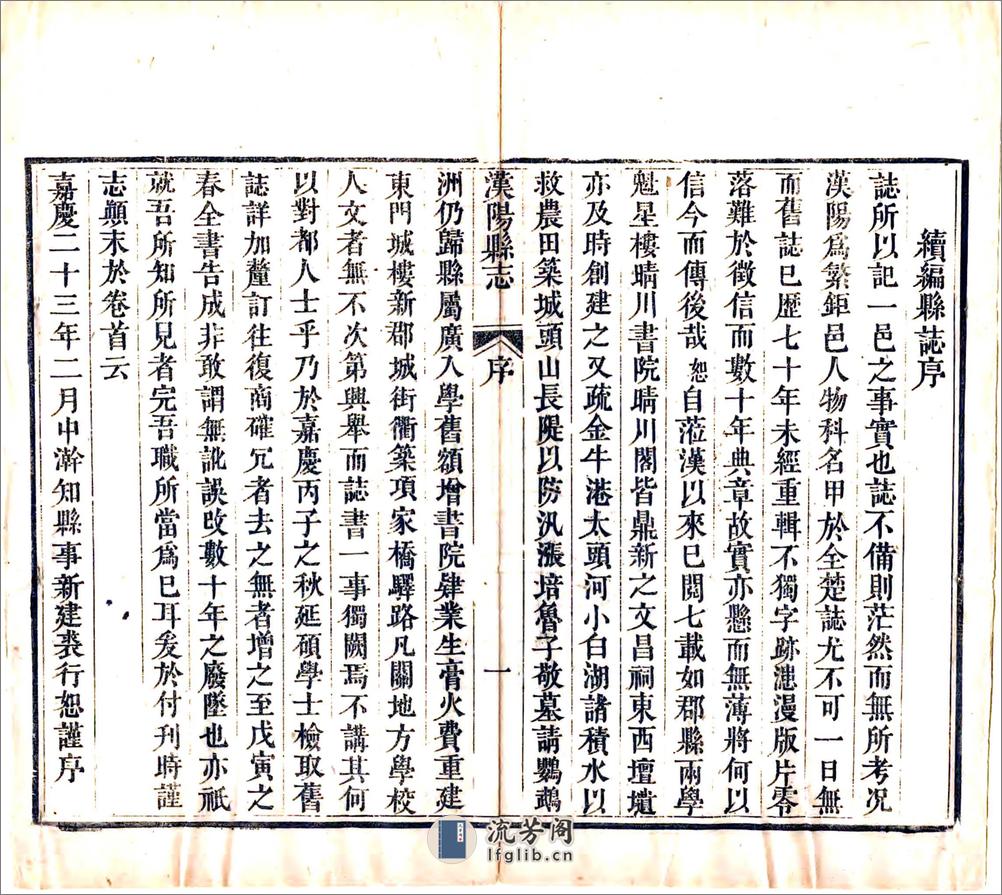 續編縣誌序
誌所以記一邑之事實也誌不備則茫然而無所考况
漢陽爲繁鉅邑人物科名甲於全楚誌尤不可一日無
而舊誌已歷七十年未經重輯不獨字跡漶漫版片零
落難於徵信而數十年典章故實亦懸而無薄將何以
信今而傳後哉恕自蒞漢以來已閱七載如郡縣兩學
魁星樓晴川書院晴川閣皆鼎新之文昌祠東西壇壝
亦及時創建之又疏金牛港太頭河小白湖諸積水以
救農田築城頭山長隄以防汎漲培魯子敬墓請鸚鵡
漢陽縣志 序 一
洲仍歸縣屬廣入學舊額增書院肄業生膏火費重建
東門城樓新郡城街衢築項家橋驛路凡關地方學校
人文者無不次第興舉而誌書一事獨闕焉不講其何
以對都人士乎乃於嘉慶丙子之秋延碩學士檢取舊
誌詳加釐訂往復商確冗者去之無者增之至戊寅之
春全書告成非敢謂無訛誤改數十年之廢墜也亦祇
就吾所知所見者完吾職所當爲已耳爰於付刊時謹
志顚末於卷首云
嘉慶二十三年二月中澣知縣事新建裘行恕謹序
流芳阁
lfglib.cn